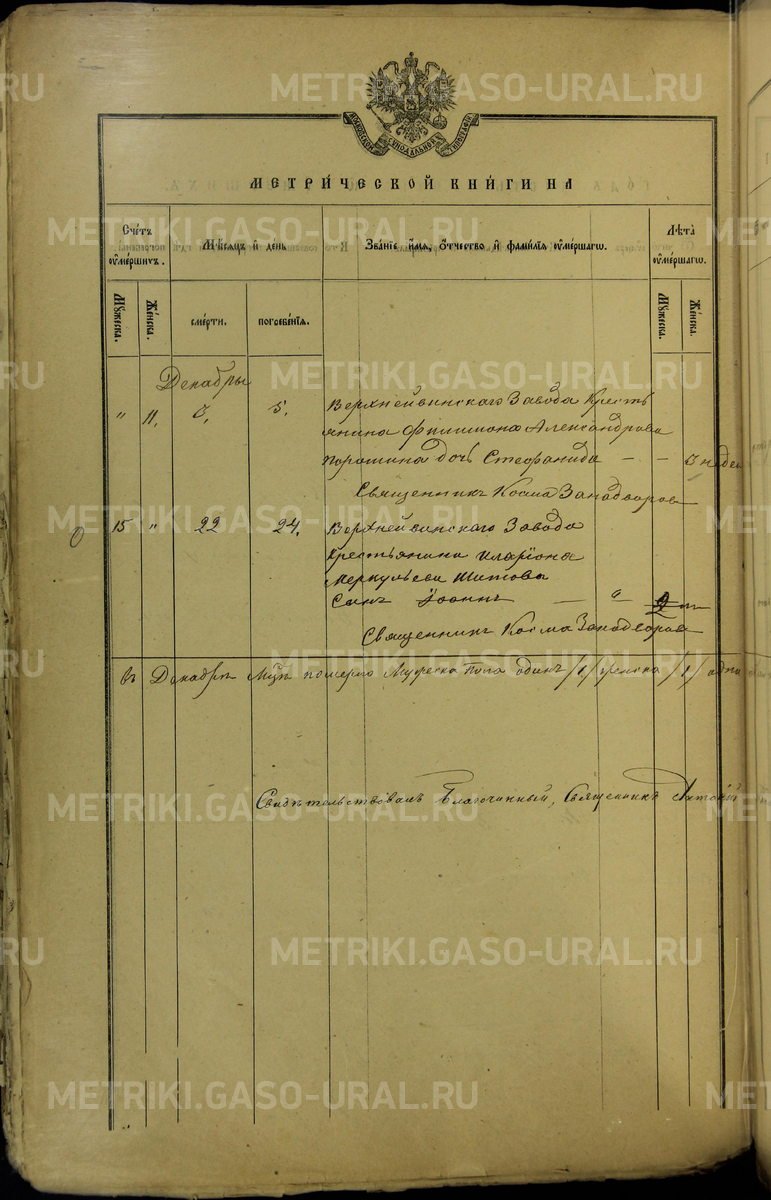 МОСКОВСКОЙ СѴНОДАЛЬНОЙ ТИПОГРАФІИ
МЕТРИ́ЧЕСКОЙ КНИ́ГИ НА
Сче́тъ ᲂу҆ме́ршихъ.
Мѣ́сяцъ и҆ де́нь
Зва́нїе, и҆́мя, ѻ҆́тчество и҆ фами́лїя ᲂу҆ме́ршагѡ.
Лѣ́та ᲂу҆ме́ршагѡ.
Мꙋ́жеска.
Же́нска.
сме́рти.
погребе́нїя.
Мꙋ́жеска.
Же́нска.
Декабрь
" 11, 5, Верхнейвинскаго Завода Кресть
янина Филимона Александрова
дочь Стефанида — — 3 недел
Священникъ Косма Западворов
15 " 22 24, Верхнейвинскаго Завода
Крестьянина Иларіона
Меркульева Шитова
Сынъ Іоаннъ — "
Священникъ Косма Западворов
въ Декабрѣ Мцѣ померло Мужеска пола одинъ /1/ женска /1/ одна
Свидѣтельствовалъ Благочинный, Священникъ Антоній
METRIKI.GASO-URAL.RU